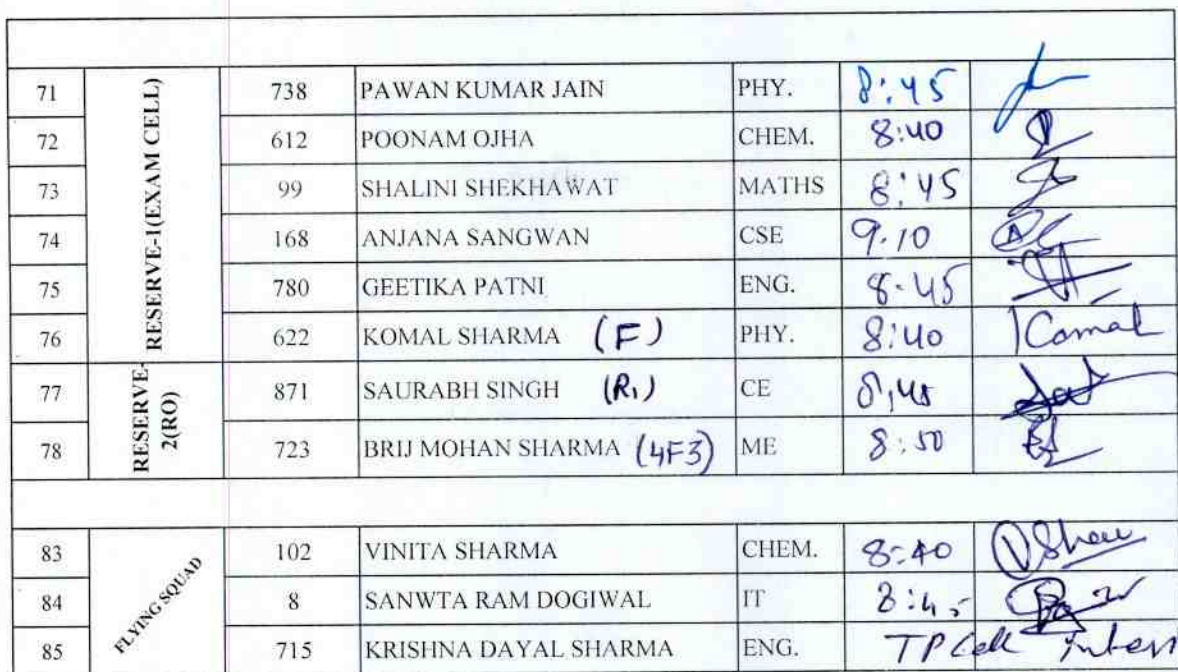 71 RESERVE-1(EXAM CELL) 738 PAWAN KUMAR JAIN PHY. 8:45
72 612 POONAM OJHA CHEM. 8:40
73 99 SHALINI SHEKHAWAT MATHS 8:45
74 168 ANJANA SANGWAN CSE 9.10
75 780 GEETIKA PATNI ENG. 8.45
76 622 KOMAL SHARMA (F) PHY. 8:40 Komal
77 RESERVE-2(RO) 871 SAURABH SINGH (R1) CE 8:45
78 723 BRIJ MOHAN SHARMA (4F3) ME 8:50
83 FLYING SQUAD 102 VINITA SHARMA CHEM. 8:40
84 8 SANWTA RAM DOGIWAL IT 8:45
85 715 KRISHNA DAYAL SHARMA ENG. TP Cell